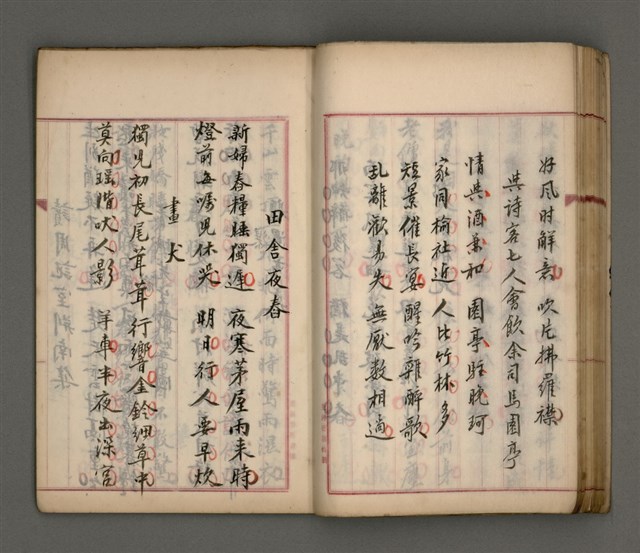 好风时解意 吹片拂羅襟
與詩客七人會飲余司馬園亭
情與酒兼和 園亭駐晚珂
家同榆社近 人比竹林多
短景催長宴 醒吟雜醉歌
乱離歡易失 無厭數相過
田舍夜舂
新婦舂糧睡獨遲 夜寒茅屋雨来時
燈前每嘱児休哭 明日行人要早炊
畫犬
獨児初長尾茸茸 行響金鈴細草中
莫向瑶階吠人影 羊車半夜出深宫